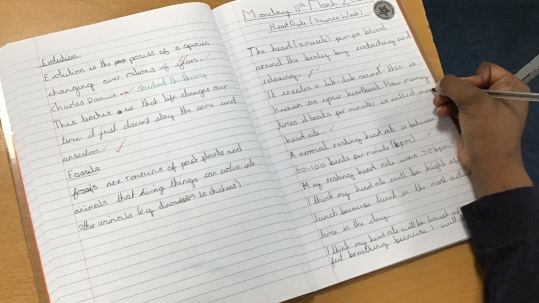 Evolution
Evolution is the process of a species
changing over millions of years.
Charles Darwin started the theory
This teaches us that life changes over
time it just doesn't stay the same and
ansestors
Fossils
fossils are remains of past plants and
animals that living things can evolve into
other animals (e.g dinosaurs to chickens)
Monday 11th March
Heart Rate (Science Week)
The heart (a muscle) pumps blood
around the body by contracting and
relaxing.
It creates a lub-dub sound, this is
known as your heartbeat. How many
times it beats per minute is called
heart rate.
A normal resting heart rate is between
60-100 beats per minute (bpm)
My resting heart rate was 70 bpm
I think my heart rate will be
lunch because lunch is the most
time in the day.
I think my heart rate will be lowest
breathing because I will